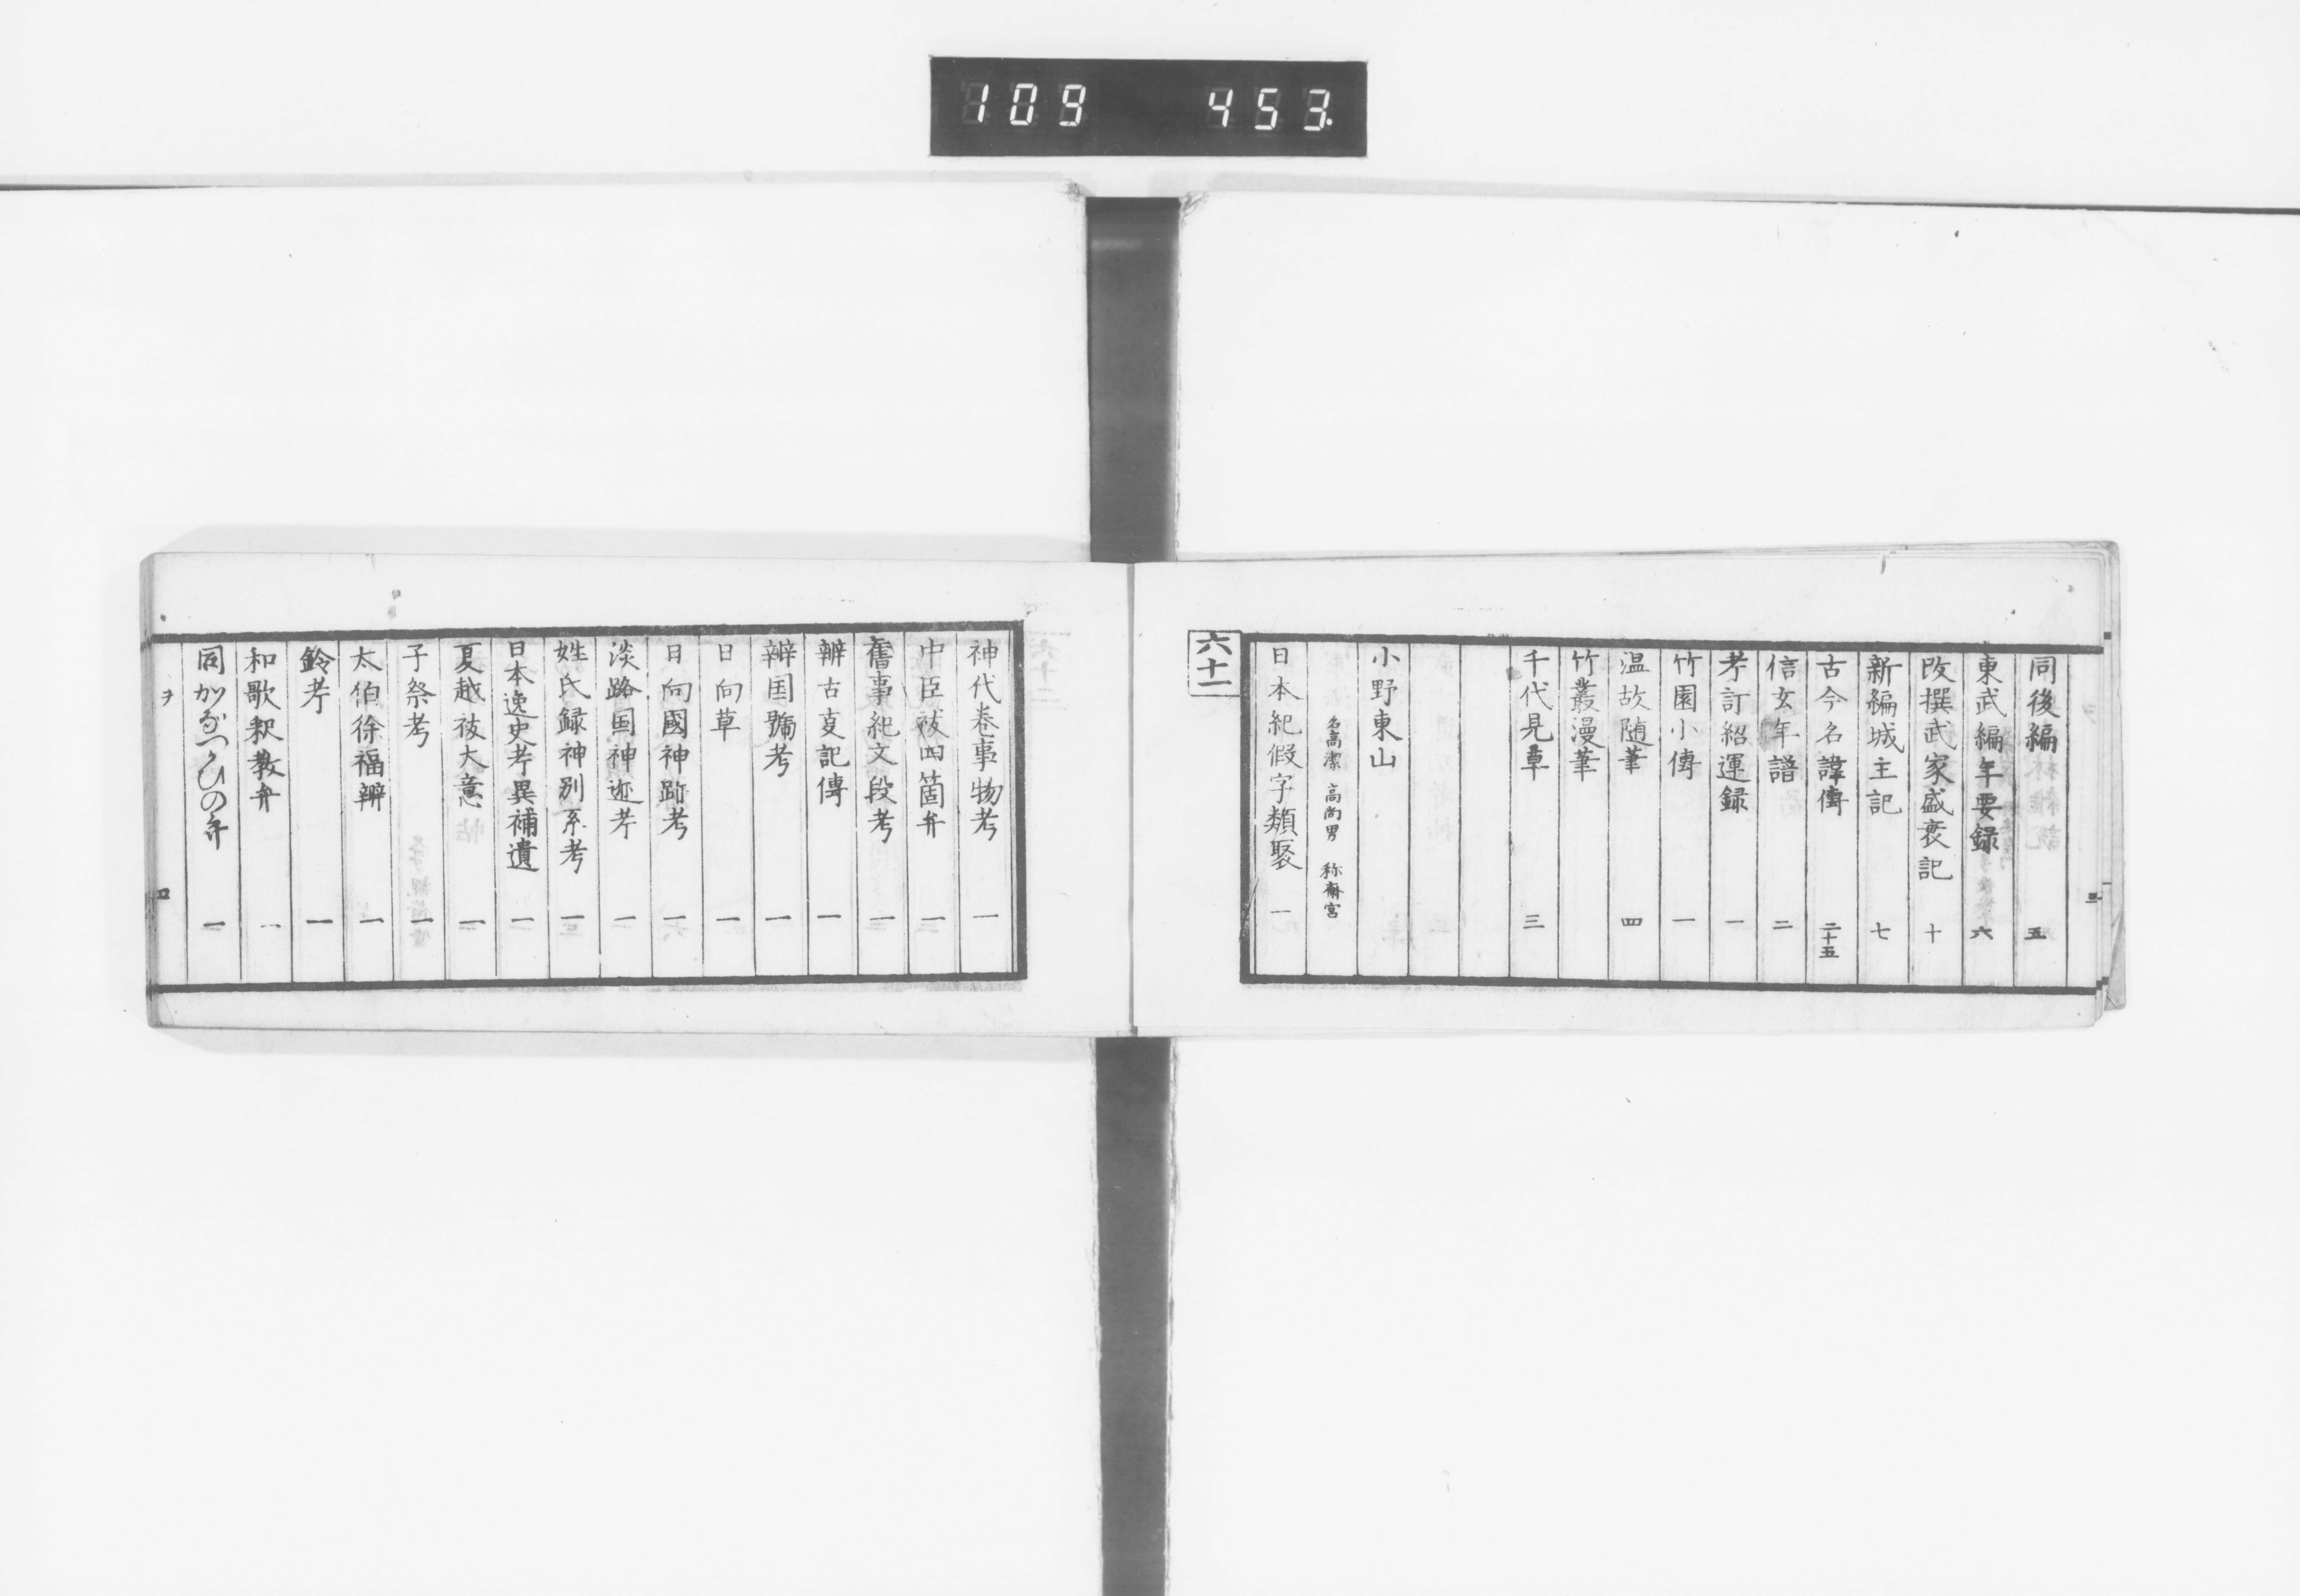 109 453.
同後編 五
東武編年要録 六
改撰武家盛衰記 十
新編城主記 七
古今名諱傳 二十五
信玄年譜 二
考訂紹運録 一
竹園小傳 一
温故随筆 四
竹叢漫筆
千代見草 三
小野東山
名高潔 高尚男 称齋宮
日本紀假字類聚 一
六十二
神代巻事物考 一
中臣祓四箇弁 一
舊事紀文段考 一
辨古事記傳 一
辨国號考 一
日向草 一
日向國神跡考 一
淡路国神迹考 一
姓氏録神別系考 一
日本逸史考異補遺 一
夏越祓大意 一
子祭考 一
太伯徐福辨 一
鈴考 一
和歌釈教弁 一
同かなつかひの弁 一
ヲ